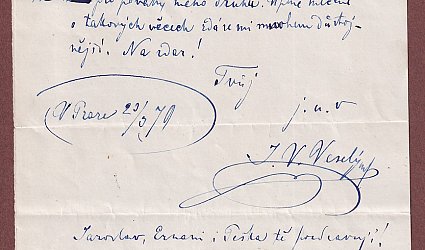 pro povahy mého druhu. Úplné mlčení
o takových věcech zdá se mi mnohem důstoj-
nější. Na zdar!
Tvůj
V Praze 23/3 79
j. a. v
J. V. Veselý
Jaroslav, Ernani i Peška tě pozdravují!